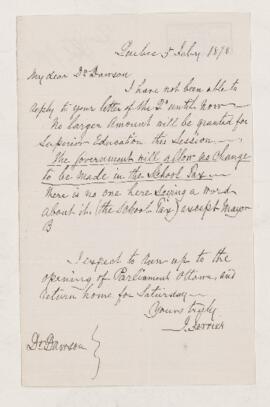 Quebec 5 Feby 1878
My dear Dr Dawson
I have not been able to
reply to your letter of the 2d until now
No larger amount will be granted for
Superior Education this Session.
The Government will allow no change
to be made in the School Tax
There is no one here saying a word
about it (the School Tax) except Mayor
B
I expect to run up to the
opening of Parliament Ottawa, and
return home for Saturday
Yours truly
J. Ferrier
Dr Dawson